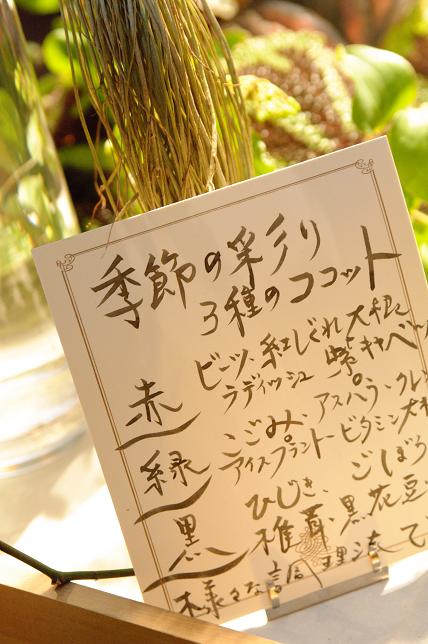 季節の彩り
3種のココット
赤
ビーツ、紅しぐれ大根
ラディッシュ 紫キャベツ
緑
こごみ、アスパラ、クレ
アイスプラント ビタミン大
黒
ひじき、ごぼう
椎茸、黒花豆
様々な調理法で